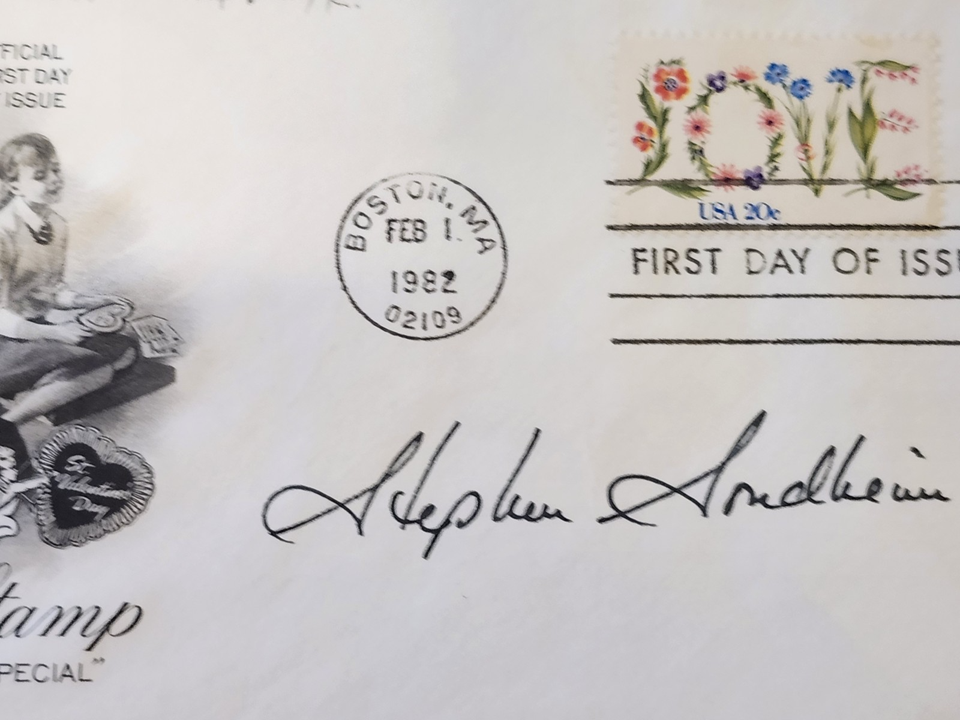 FICIAL
RST DAY
ISSUE
LOVE
USA 20c
BOSTON, MA
FEB 1.
1982
02109
FIRST DAY OF ISSU
Stephen Sondheim
St.
Valentine's
Day
tamp
PECIAL”